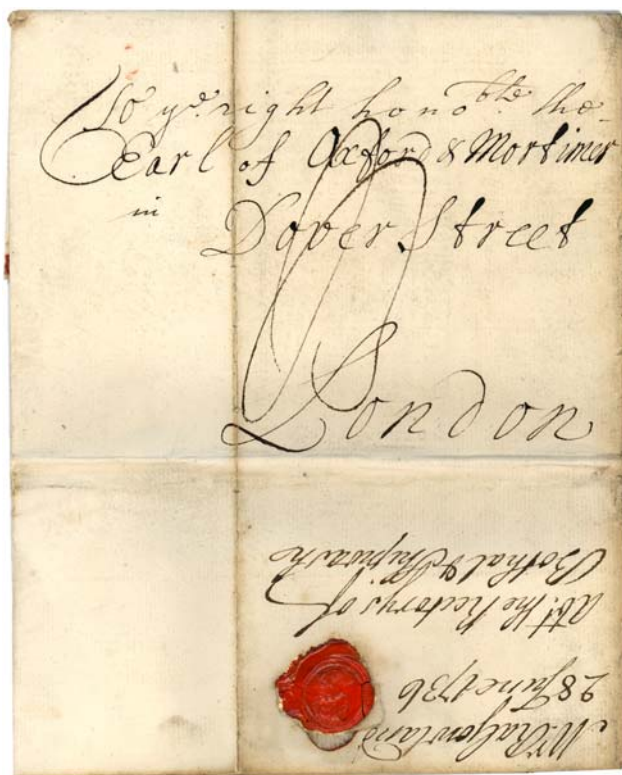 To ye. right hono.ble the
Earl of Oxford & Mortimer
in Dover Street
London
Mr. Ra. Gowland
28 June 1736
abt. the Rectorys of
Bothal & Sheepwash